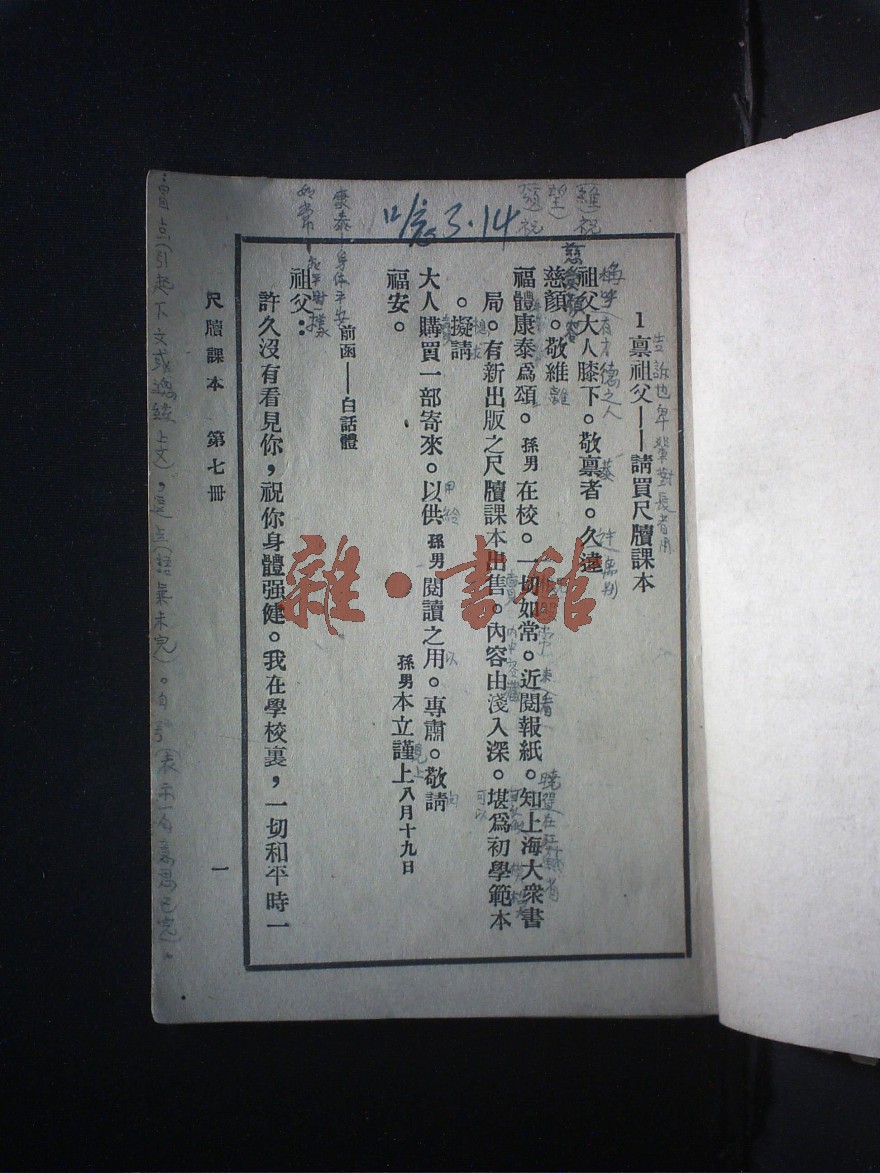 1 禀祖父——請買尺牘課本
祖父大人膝下。敬禀者。久違
慈顏。敬維
福體康泰爲頌。孫男在校。一切如常。近閱報紙。知上海大衆書
局。有新出版之尺牘課本出售。內容由淺入深。堪爲初學範本
。擬請
大人購買一部寄來。以供孫男閱讀之用。專肅。敬請
福安。
孫男本立謹上八月十九日
前函——白話體
祖父：
許久沒有看見你，祝你身體强健。我在學校裏，一切和平時一
尺牘課本 第七冊
一
告訴也卑輩對長者用
有才德之人
康泰——身体平安
如常——和平時一樣
3.14
雜·書館